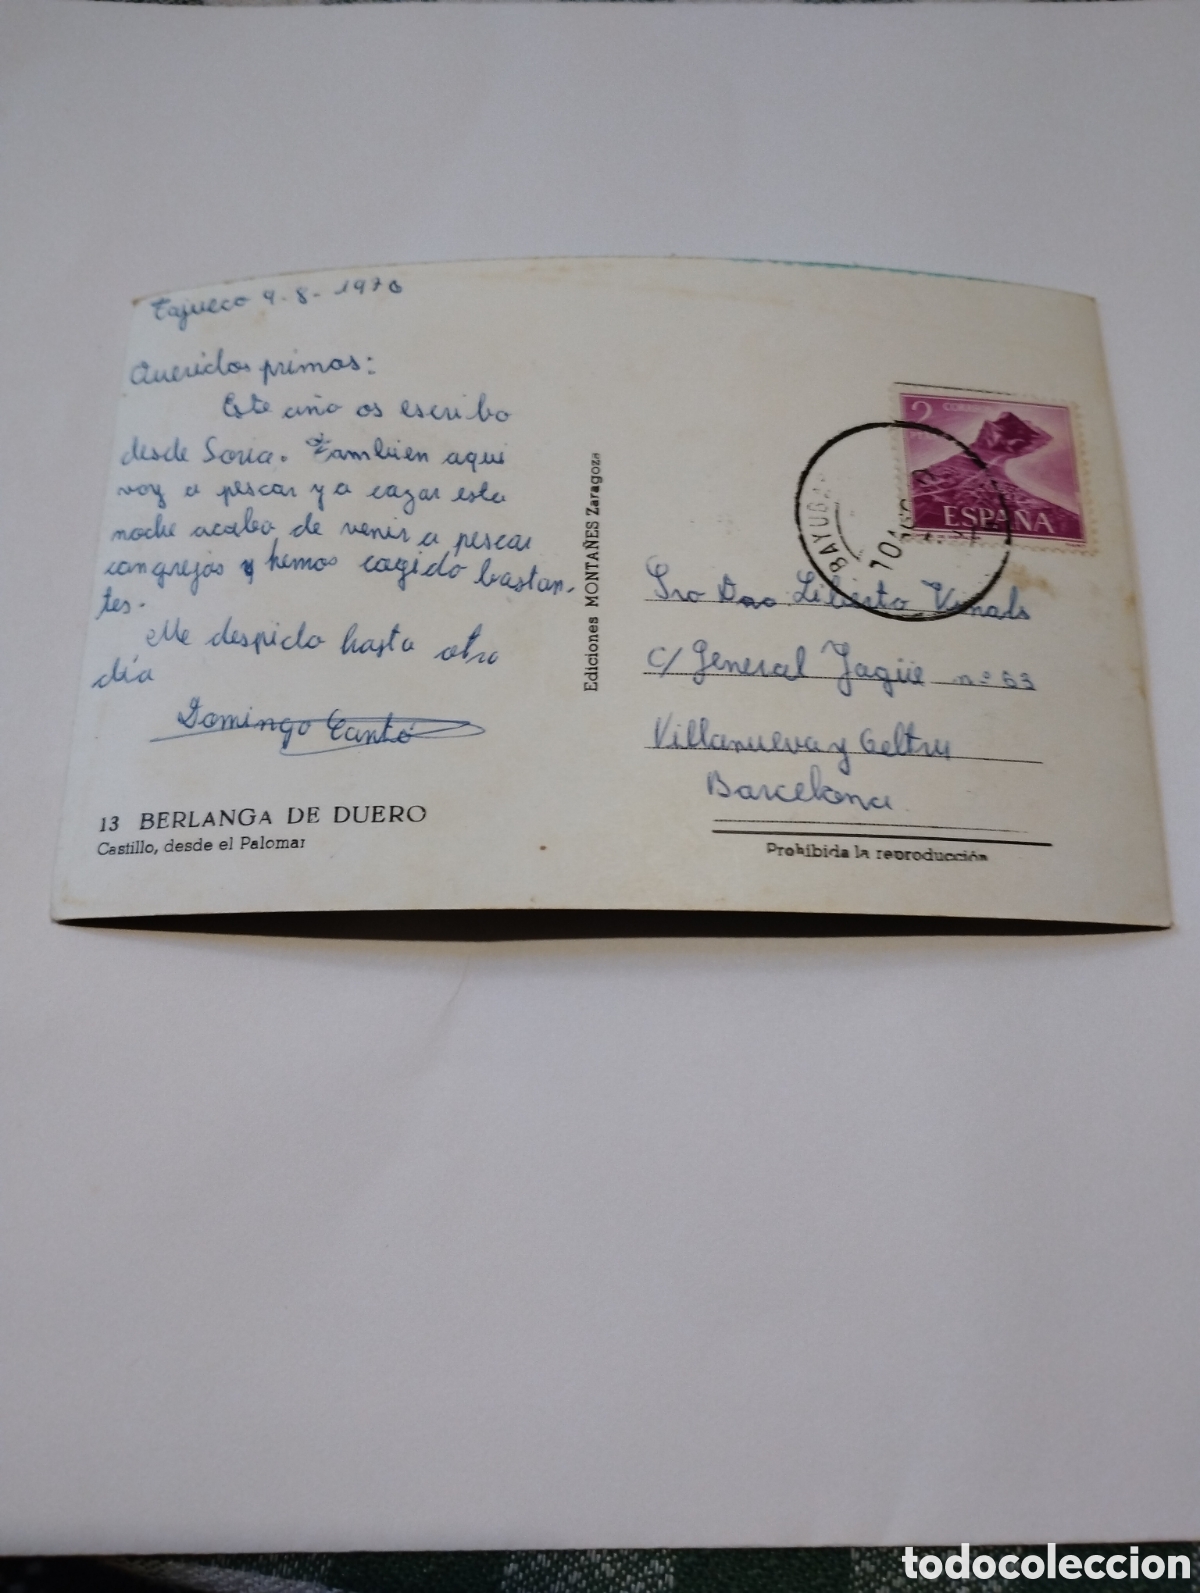 Tajueco 9-8-1970
Queridos primos:
Este año os escribo
desde Soria. Tambien aqui
voy a pescar y a cazar esta
noche acabo de venir a pescar
cangrejos y hemos cogido bastan-
tes.
Me despido hasta otro
día
Domingo Cantó
13 BERLANGA DE DUERO
Castillo, desde el Palomar
Ediciones MONTAÑES Zaragoza
2
PTAS
CORREOS
ESPAÑA
BAYUBA
10 AGO
Sro Dno Liberto Vinals
c/ General Yagüe nº 63
Villanueva y Geltru
Barcelona
Prohibida la reproducción
todocoleccion